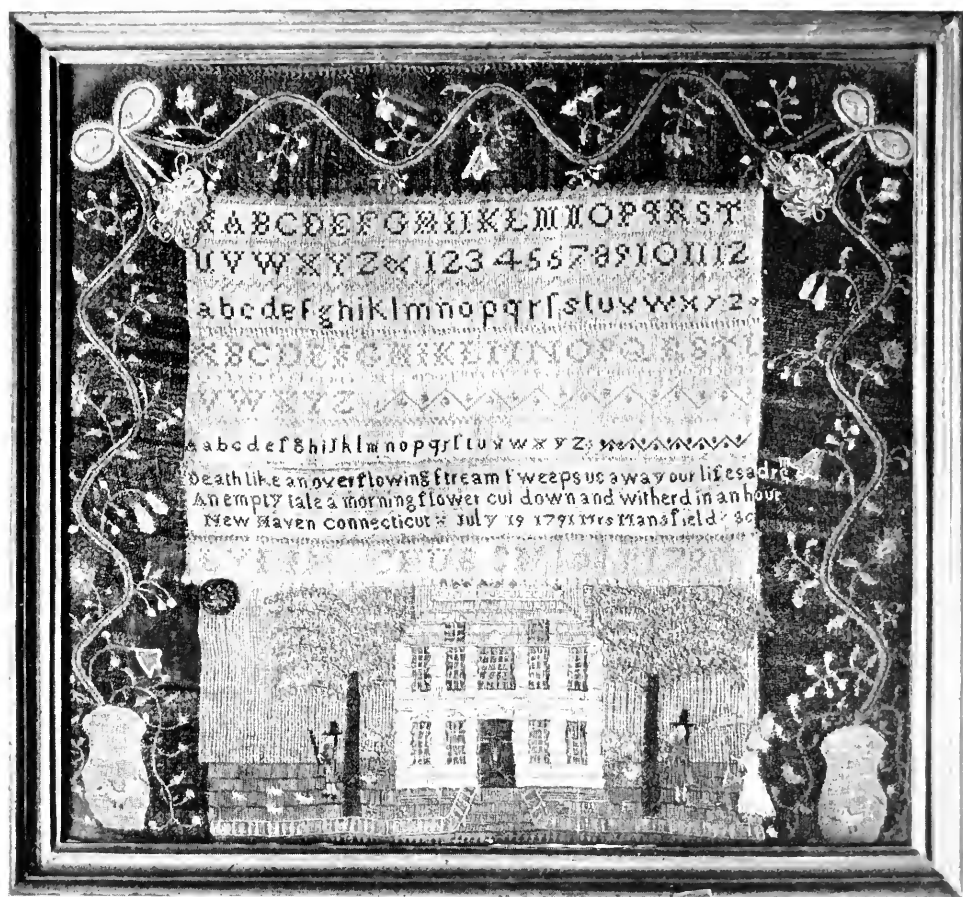 ABCDEFGHIKLMNOPQRST
UVWXYZ& 123456789101112
abcdefghiklmnopqrſstuvwxyz
ABCDEFGHIKLMNOPQRSTU
VWXYZ
Aabcdefghijklmnopqrſtuvwxyz
Death like an overflowing ſtream ſweeps us away our lifes a dream
An empty tale a morning flower cut down and witherd in an hour
New Haven Connecticut July 19 1791 Mrs Mansfield Sc